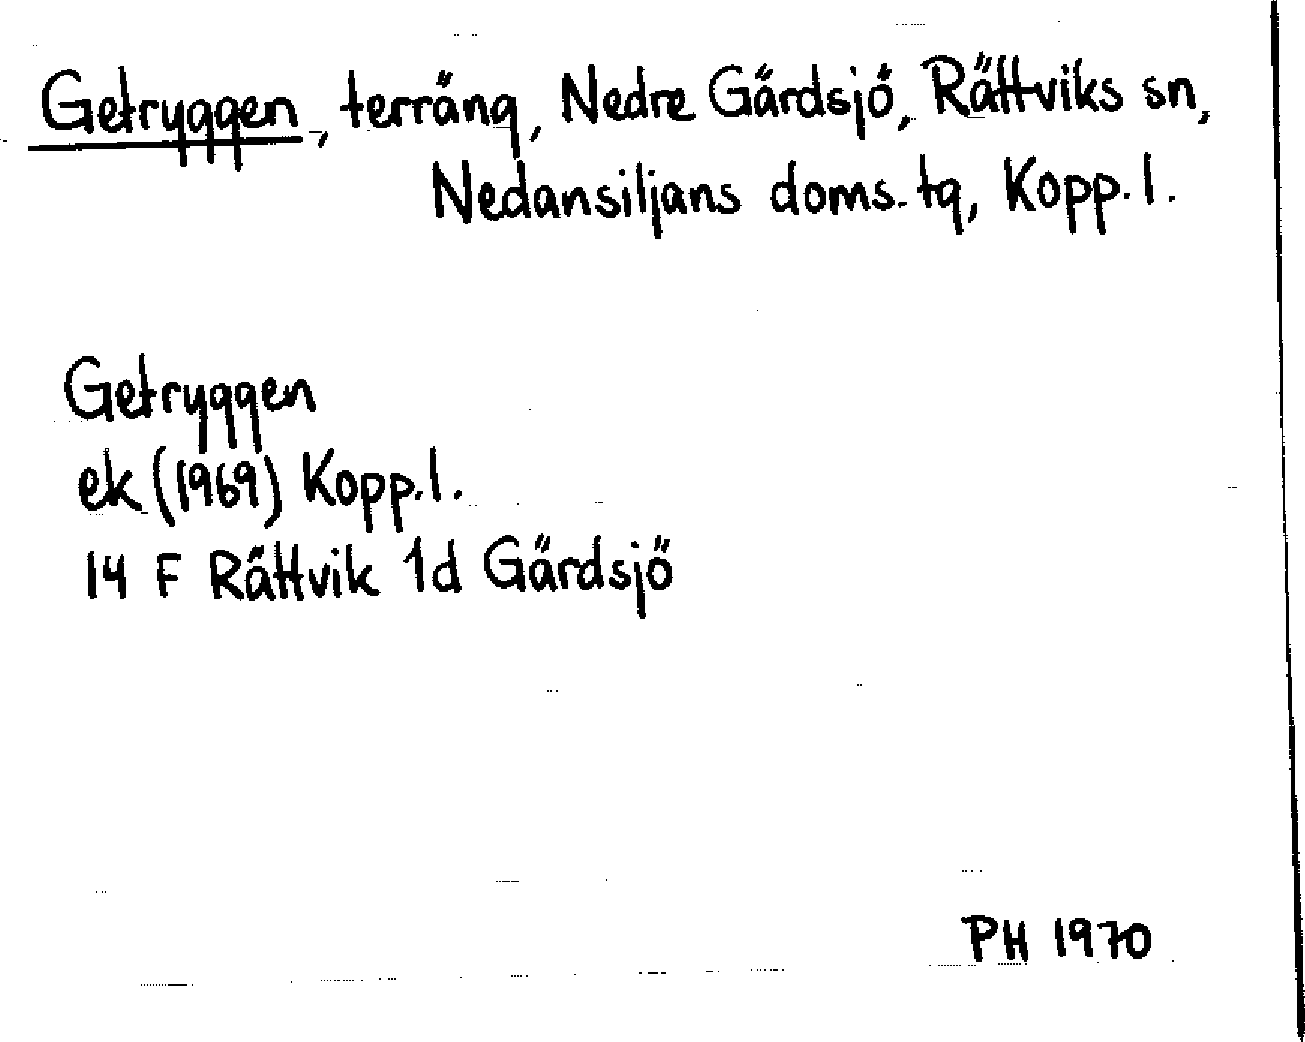 Getryggen, terräng, Nedre Gärdsjö, Rättviks sn,
Nedansiljans doms. tg, Kopp. l.
Getryggen
ek (1969) Kopp. l.
14 F Rättvik 1d Gärdsjö
PH 1970